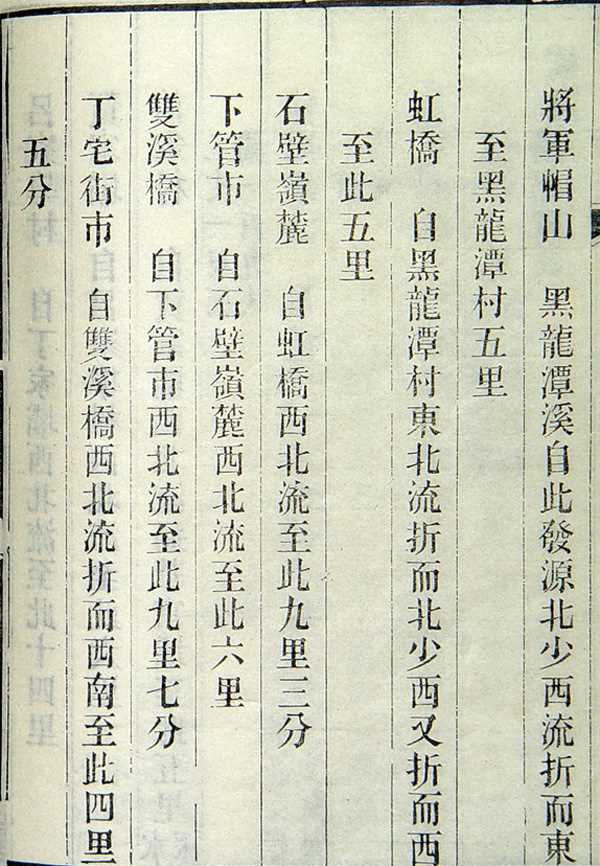 將軍帽山　黑龍潭溪自此發源北少西流折而東
至黑龍潭村五里
虹橋　自黑龍潭村東北流折而北少西又折而西
至此五里
石壁嶺麓　自虹橋西北流至此九里三分
下管市　自石壁嶺麓西北流至此六里
雙溪橋　自下管市西北流至此九里七分
丁宅街市　自雙溪橋西北流折而西南至此四里
五分